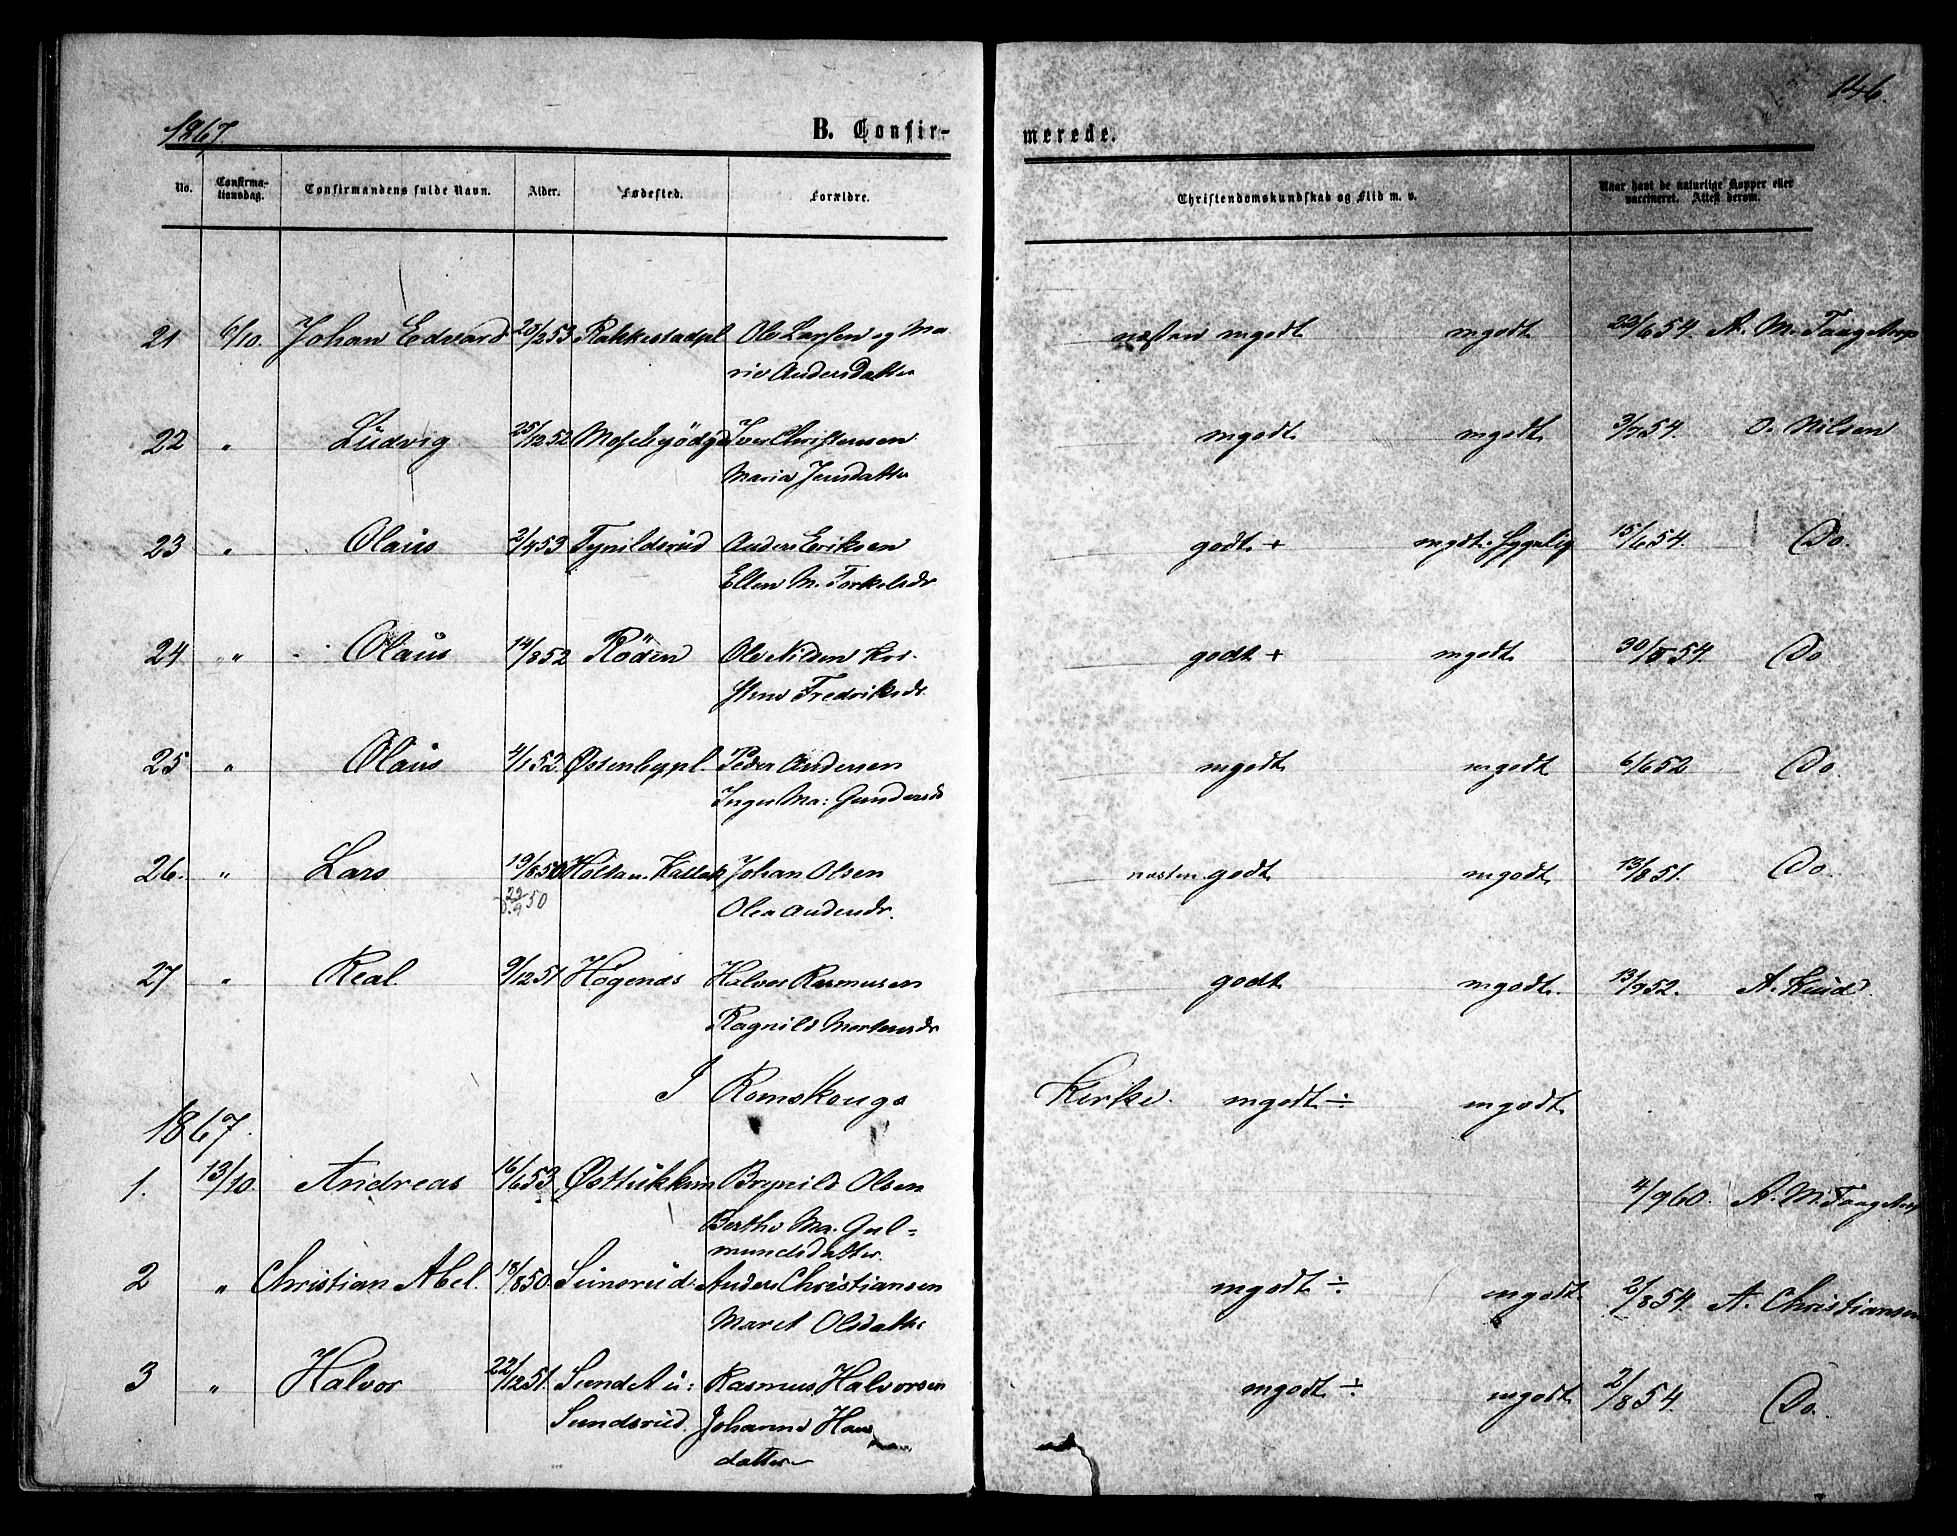 146.
1867.
B. Confir-
merede.
No.
Confirma-
tionsdag.
Confirmandens fulde Navn.
Alder.
Fødested.
Forældre.
Christendomskundskab og Flid m. v.
Naar havt de naturlige Kopper eller
vaccineret. Attest derom.
21 6/10. Johan Edvard 20/2 53 Rakkestadpl Ole Larsen og Ma næsten mgodt mgodt 22/6 54. A. M.
rie Andersdatter
22 " Ludvig 25/12 52 Iver Christensen mgodt mgodt 3/7 54. O. Nilsen
Maria Jensdatter
23 " Olaus 2/4 53 Tynildsrud Anders Eriksen godt + mgodt 15/6 54. Do.
Ellen M. Torkelsdr
24 " Olaus 14/8 52 Röden Ole Nilsen Kri- godt + mgodt 30/5 54. Do
stine Fredriksdr.
25 " Olaus 4/1 52. Østenbypl. Peder Andersen mgodt mgodt 6/6 52 Do.
Inger Ma: Gundersd
26. " Lars 19/8 50 Holtan. Johan Olsen næsten godt mgodt 13/8 51. Do
D. 29/9 50
Olea Andersdr.
27 " Real 9/12 51 Høgenæs Halvor Rasmussen godt mgodt. 13/9 52. A.
Ragnild Mortensdr
I Romskougs Kirke. mgodt ÷ mgodt
1867.
1. 13/10. Andreas 16/6 53. Brynild Olsen 4/9 60. A. M.
Berthe Ma. Gul-
mundsdatter.
2 " Christian Abel. 18/8 50. Sunsrud. Anders Christiansen mgodt ÷ mgodt. 2/8 54. A. Christiansen
Maret Olsdatter
3 " Halvor 22/12 51. Sundt u: Rasmus Halvorsen mgodt ÷ mgodt 2/8 54. Do.
Sundsrud. Johanne Hans
datter